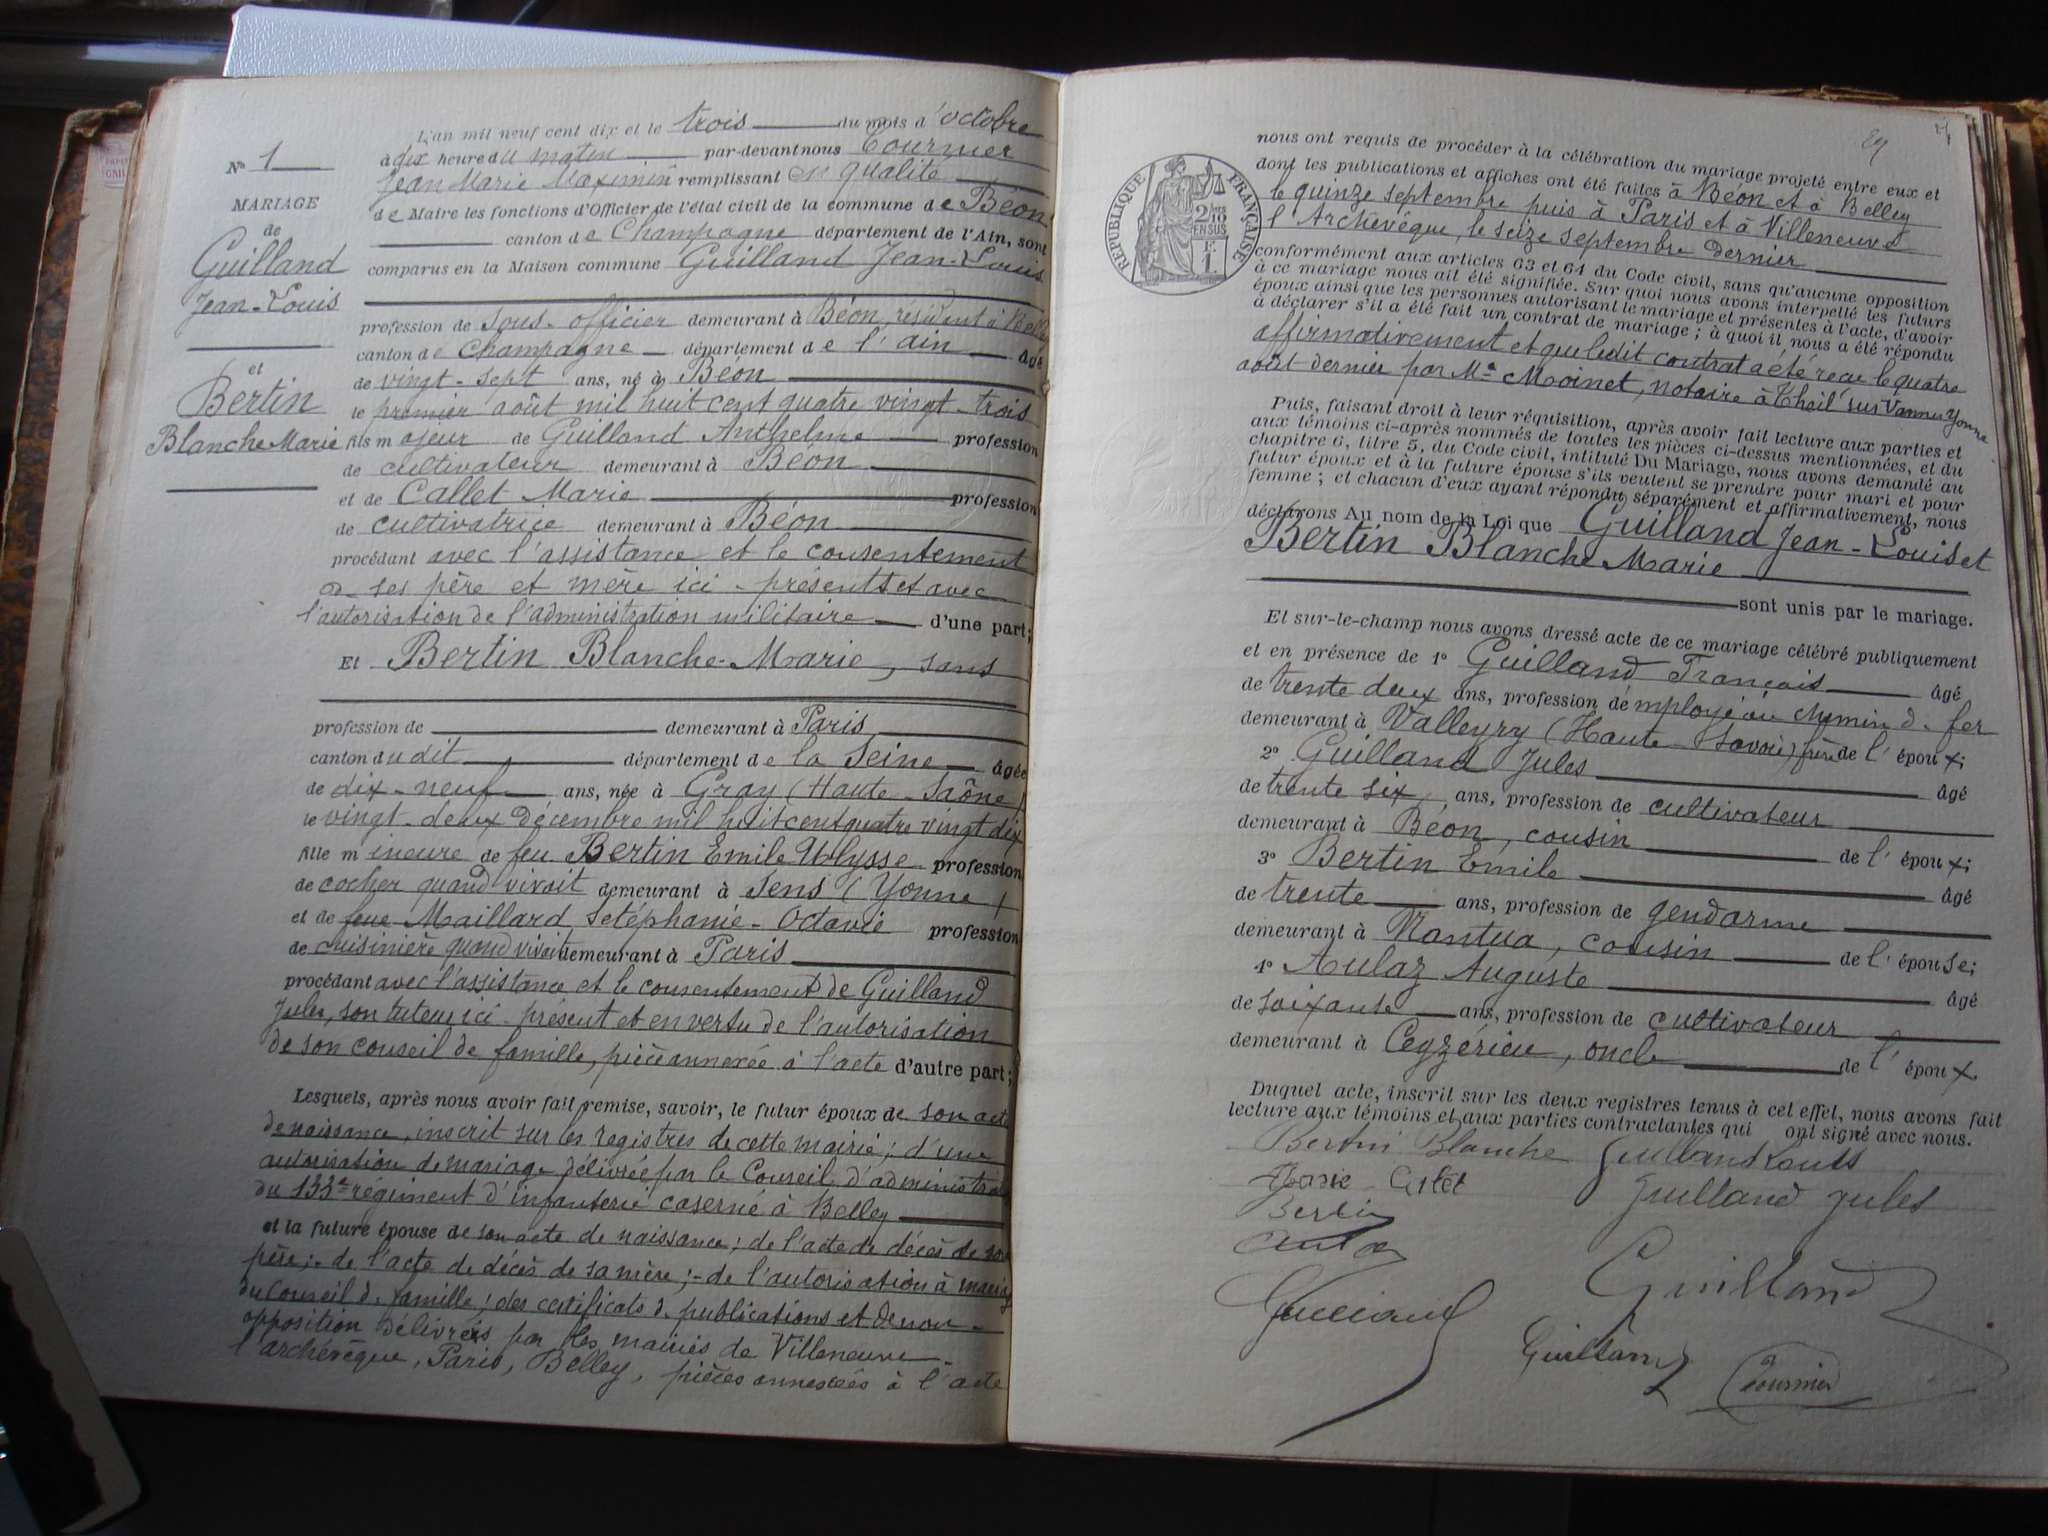 L'an mil neuf cent dix et le trois du mois d'octobre
à dix heure du matin par-devant nous Tournier
Jean Marie Maximin remplissant en qualité
de Maire les fonctions d'Officier de l'état civil de la commune de Béon
canton de Champagne département de l'Ain, sont
comparus en la Maison commune Guilland Jean-Louis
profession de sous-officier demeurant à Béon, résidant à Belley
canton de Champagne département de l'ain âgé
de vingt-sept ans, né à Béon
le premier août mil huit cent quatre vingt-trois
fils majeur de Guilland Anthelme profession
de cultivateur demeurant à Béon
et de Callet Marie profession
de cultivatrice demeurant à Béon
procédant avec l'assistance et le consentement
de ses père et mère ici-présents et avec
l'autorisation de l'administration militaire d'une part;
Et Bertin Blanche-Marie, sans
profession de demeurant à Paris
canton dudit département de la Seine âgée
de dix-neuf ans, née à Gray (Haute-Saône)
le vingt-deux décembre mil huit cent quatre vingt dix
fille mineure de feu Bertin Emile Ulysse profession
de cocher quand vivait demeurant à Sens (Yonne)
et de feue Maillard Setéphanie-Octavie profession
de cuisinière quand vivait demeurant à Paris
procédant avec l'assistance et le consentement de Guilland
Jules, son tuteur ici-présent et en vertu de l'autorisation
de son conseil de famille, pièce annexée à l'acte d'autre part;
Lesquels, après nous avoir fait remise, savoir, le futur époux de son acte
de naissance, inscrit sur les registres de cette mairie; d'une
autorisation de mariage délivrée par le Conseil d'administra
du 133e régiment d'infanterie caserné à Belley
et la future épouse de son acte de naissance; de l'acte de décès de son
père; de l'acte de décès de sa mère; de l'autorisation à mariage
du Conseil de famille; des certificats de publications et de non-
opposition délivrés par les mairies de Villeneuve-
l'archevêque, Paris, Belley, pièces annexées à l'acte
No 1
MARIAGE
de
Guilland
Jean-Louis
et
Bertin
Blanche Marie
nous ont requis de procéder à la célébration du mariage projeté entre eux et
dont les publications et affiches ont été faites à Béon et à Belley
le quinze septembre puis à Paris et à Villeneuve
l'Archevêque, le seize septembre dernier
conformément aux articles 63 et 64 du Code civil, sans qu'aucune opposition
à ce mariage nous ait été signifiée. Sur quoi nous avons interpellé les futurs
époux ainsi que les personnes autorisant le mariage et présentes à l'acte, d'avoir
à déclarer s'il a été fait un contrat de mariage; à quoi il nous a été répondu
affirmativement et que ledit contrat a été reçu le quatre
août dernier par Me Moinet, notaire à Theil sur Vannes Yonne
Puis, faisant droit à leur réquisition, après avoir fait lecture aux parties et
aux témoins ci-après nommés de toutes les pièces ci-dessus mentionnées, et du
chapitre 6, titre 5, du Code civil, intitulé Du Mariage, nous avons demandé au
futur époux et à la future épouse s'ils veulent se prendre pour mari et pour
femme; et chacun d'eux ayant répondu séparément et affirmativement, nous
déclarons Au nom de la Loi que Guilland Jean-Louis et
Bertin Blanche Marie
sont unis par le mariage.
Et sur-le-champ nous avons dressé acte de ce mariage célébré publiquement
et en présence de 1o Guilland François âgé
de trente deux ans, profession d'employé au chemin de fer
demeurant à Valleyry (Haute-Savoie) frère de l'époux;
2o Guilland Jules âgé
de trente six ans, profession de cultivateur
demeurant à Béon, cousin de l'époux;
3o Bertin Emile âgé
de trente ans, profession de gendarme
demeurant à Nantua, cousin de l'épouse;
4o Aulaz Auguste âgé
de soixante ans, profession de cultivateur
demeurant à Ceyzérieu, oncle de l'époux
Duquel acte, inscrit sur les deux registres tenus à cet effet, nous avons fait
lecture aux témoins et aux parties contractantes qui ont signé avec nous.
Bertin Blanche Guilland Louis
Marie Guilland Jules
Bertin
Guilland
Guilland
Guilland
Tournier
RÉPUBLIQUE FRANÇAISE
2
EN SUS
1 F.